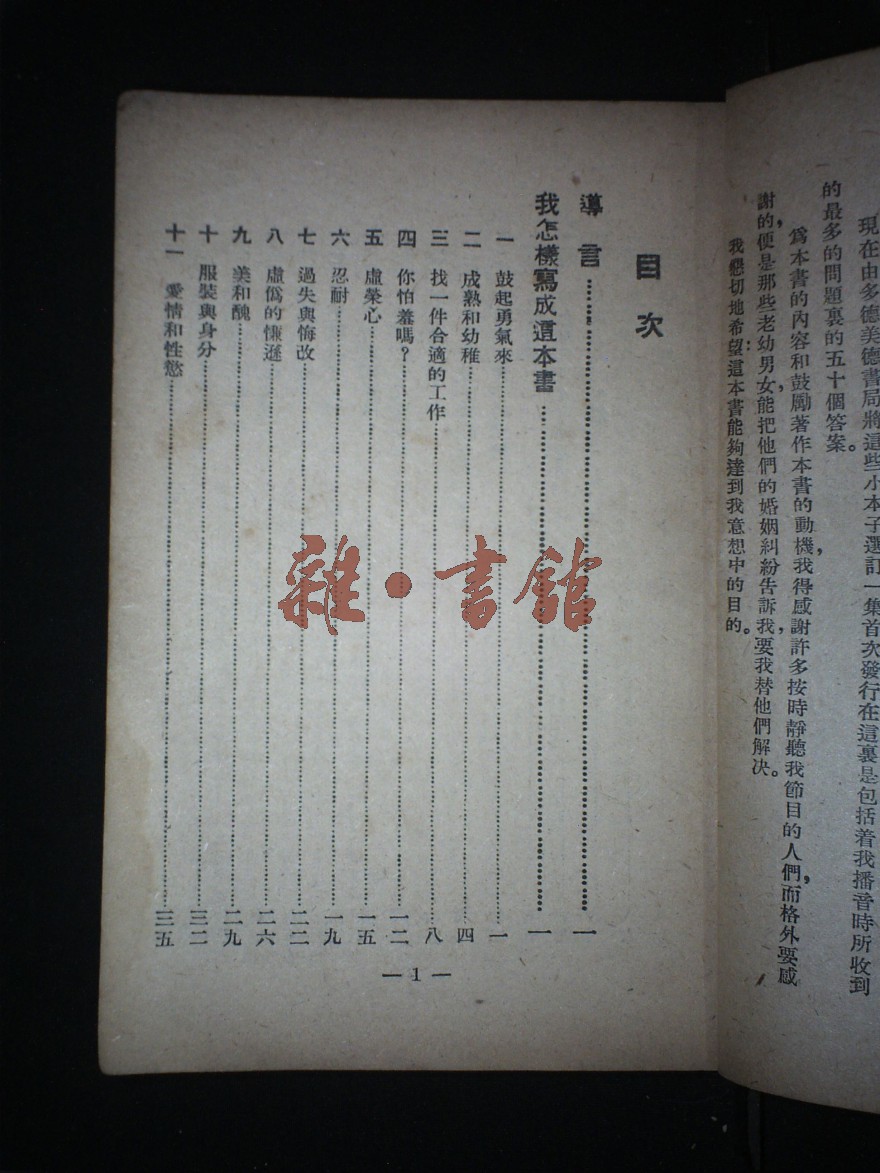 現在由多德美德書局將這些小本子選訂一集首次發行在這裏是包括着我播音時所收到
的最多的問題裏的五十個答案。
爲本書的內容和鼓勵著作本書的動機，我得感謝許多按時靜聽我節目的人們，而格外要感
謝的，便是那些老幼男女，能把他們的婚姻糾紛告訴我，要我替他們解决。
我懇切地希望：這本書能夠達到我意想中的目的。
目次
導言……一
我怎樣寫成這本書……一
一 鼓起勇氣來……一
二 成熟和幼稚……四
三 找一件合適的工作……八
四 你怕羞嗎？……一二
五 虛榮心……一五
六 忍耐……一九
七 過失與悔改……二二
八 虛僞的慊遜……二六
九 美和醜……二九
十 服裝與身分……三二
十一 愛情和性慾……三五
— 1 —
雜·書館